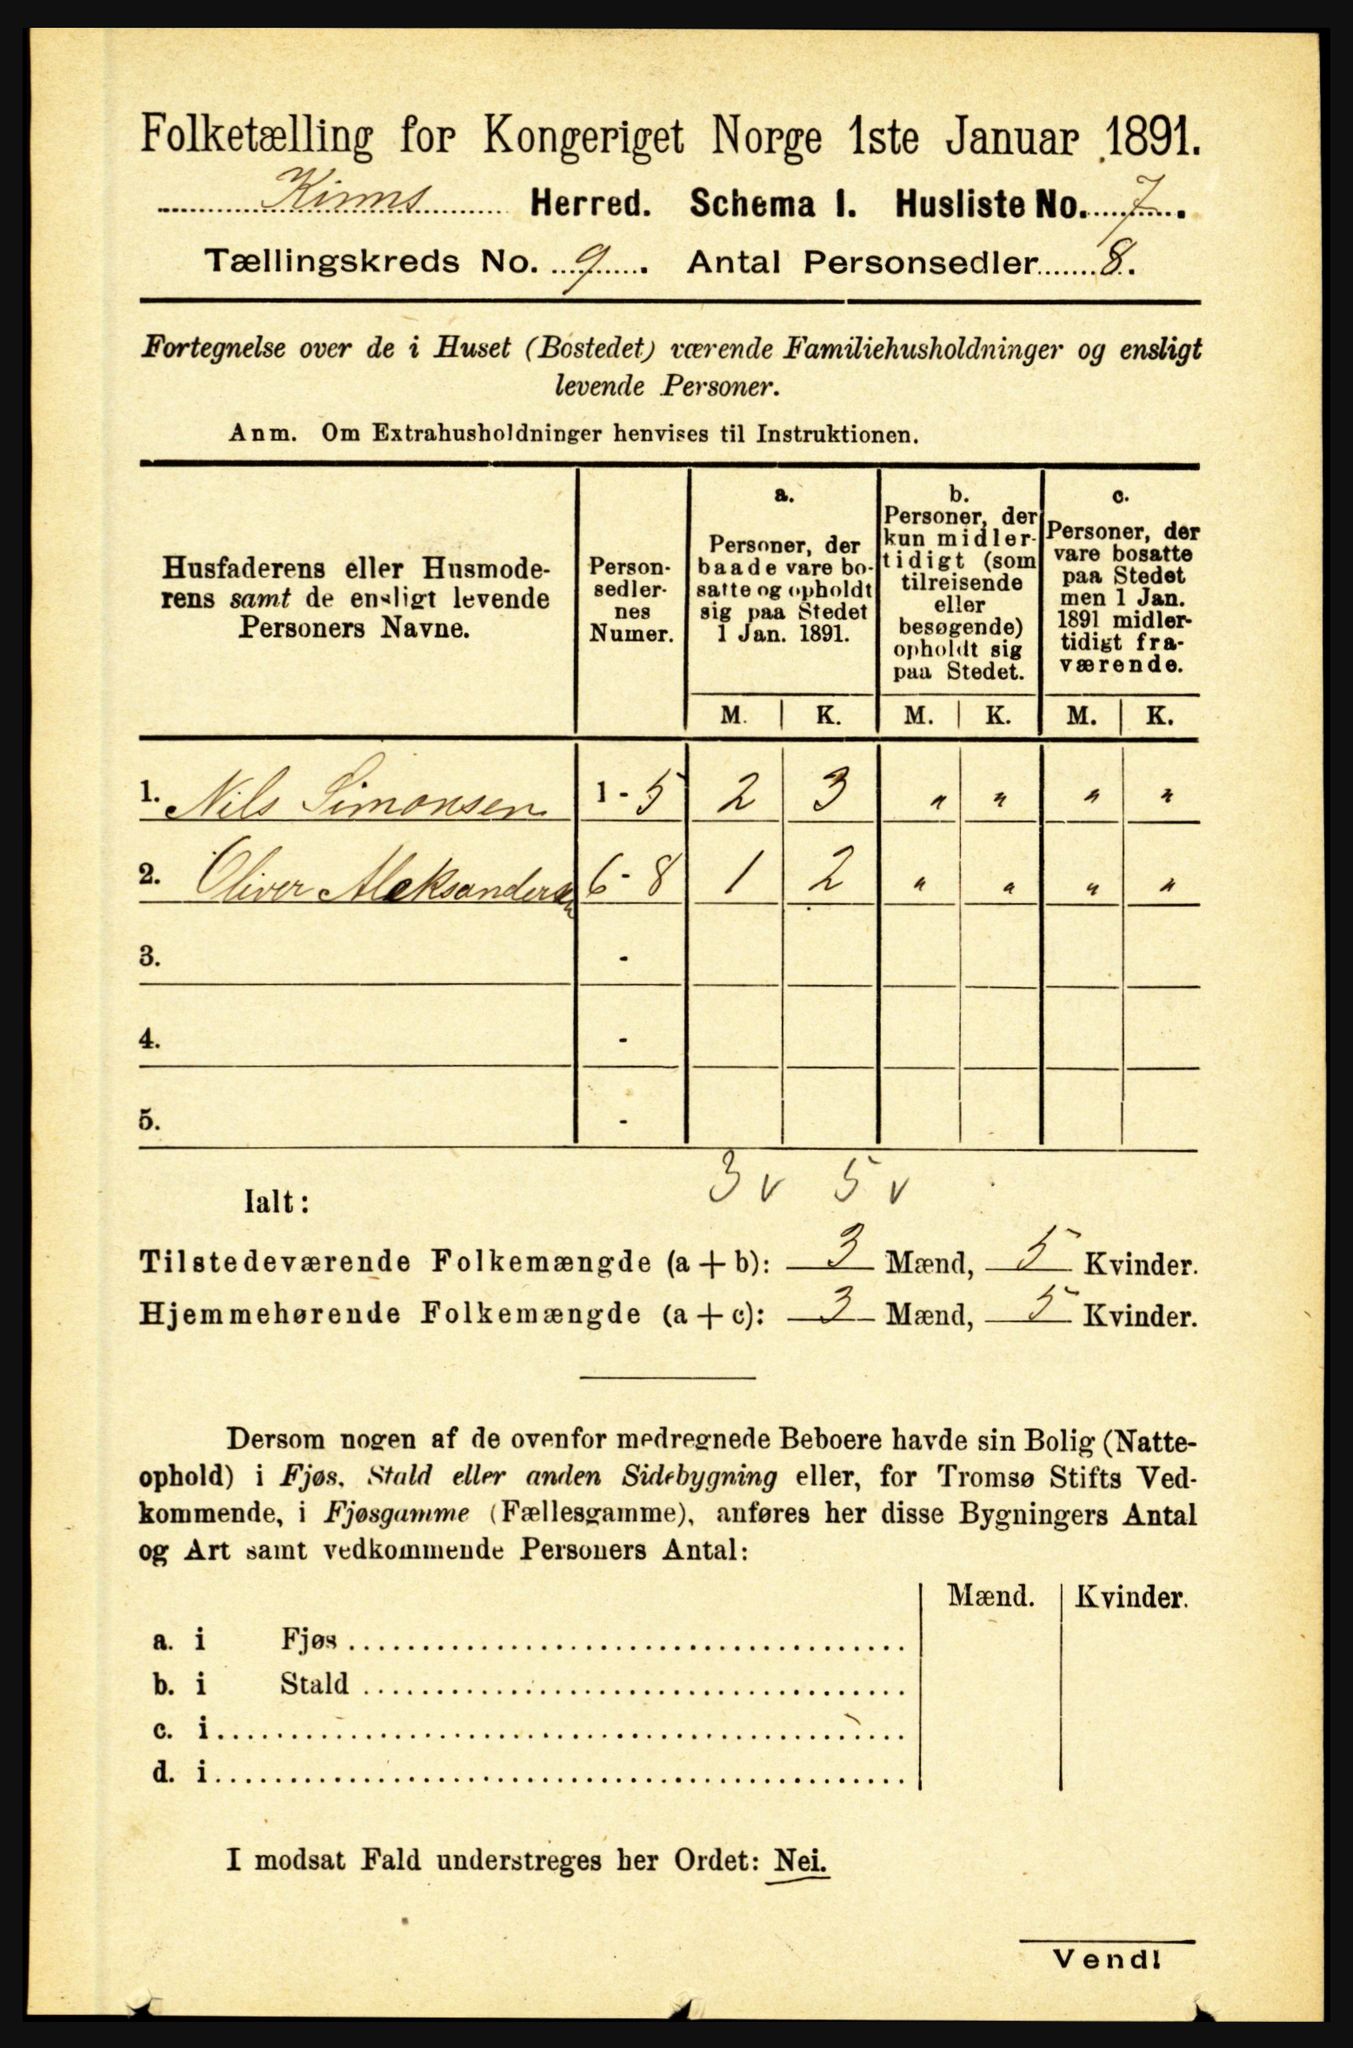 Folketælling for Kongeriget Norge 1ste Januar 1891.
Kinns Herred. Schema I. Husliste No. 7.
Tællingskreds No. 9. Antal Personsedler 8.
Fortegnelse over de i Huset (Bostedet) værende Familiehusholdninger og ensligt
levende Personer.
Anm. Om Extrahusholdninger henvises til Instruktionen.
Husfaderens eller Husmode-
rens samt de ensligt levende
Personers Navne.
Person-
sedler-
nes
Numer.
a.
Personer, der
baade vare bo-
satte og opholdt
sig paa Stedet
1 Jan. 1891.
b.
Personer, der
kun midler-
tidigt (som
tilreisende
eller
besøgende)
opholdt sig
paa Stedet.
c.
Personer, der
vare bosatte
paa Stedet
men 1 Jan.
1891 midler-
tidigt fra-
værende.
M. K. M. K. M. K.
1. Nils Simonsen 1 - 5 2 3 " " " "
2. Oliver Aleksandersen 6 - 8 1 2 " " " "
3. -
4. -
5. -
Ialt: 3 v 5 v
Tilstedeværende Folkemængde (a + b): 3 Mænd, 5 Kvinder.
Hjemmehørende Folkemængde (a + c): 3 Mænd, 5 Kvinder.
Dersom nogen af de ovenfor medregnede Beboere havde sin Bolig (Natte-
ophold) i Fjøs, Stald eller anden Sidebygning eller, for Tromsø Stifts Ved-
kommende, i Fjøsgamme (Fællesgamme), anføres her disse Bygningers Antal
og Art samt vedkommende Personers Antal:
Mænd. Kvinder.
a. i Fjøs
b. i Stald
c. i
d. i
I modsat Fald understreges her Ordet: Nei.
Vend!